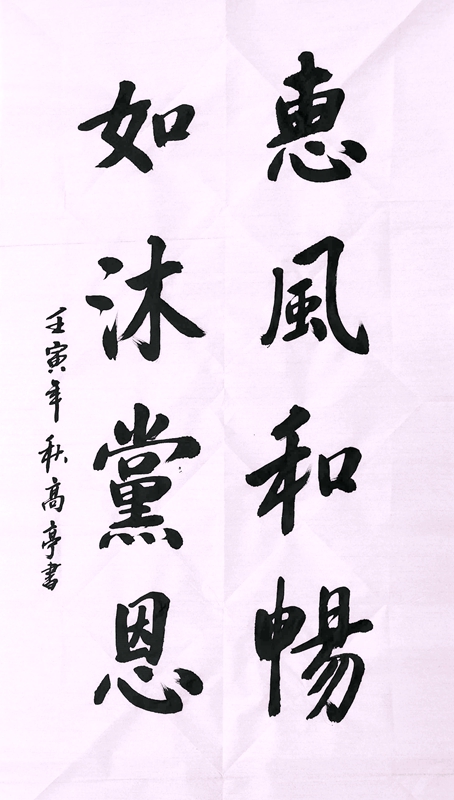 惠風和暢
如沐黨恩
壬寅年秋高亭書